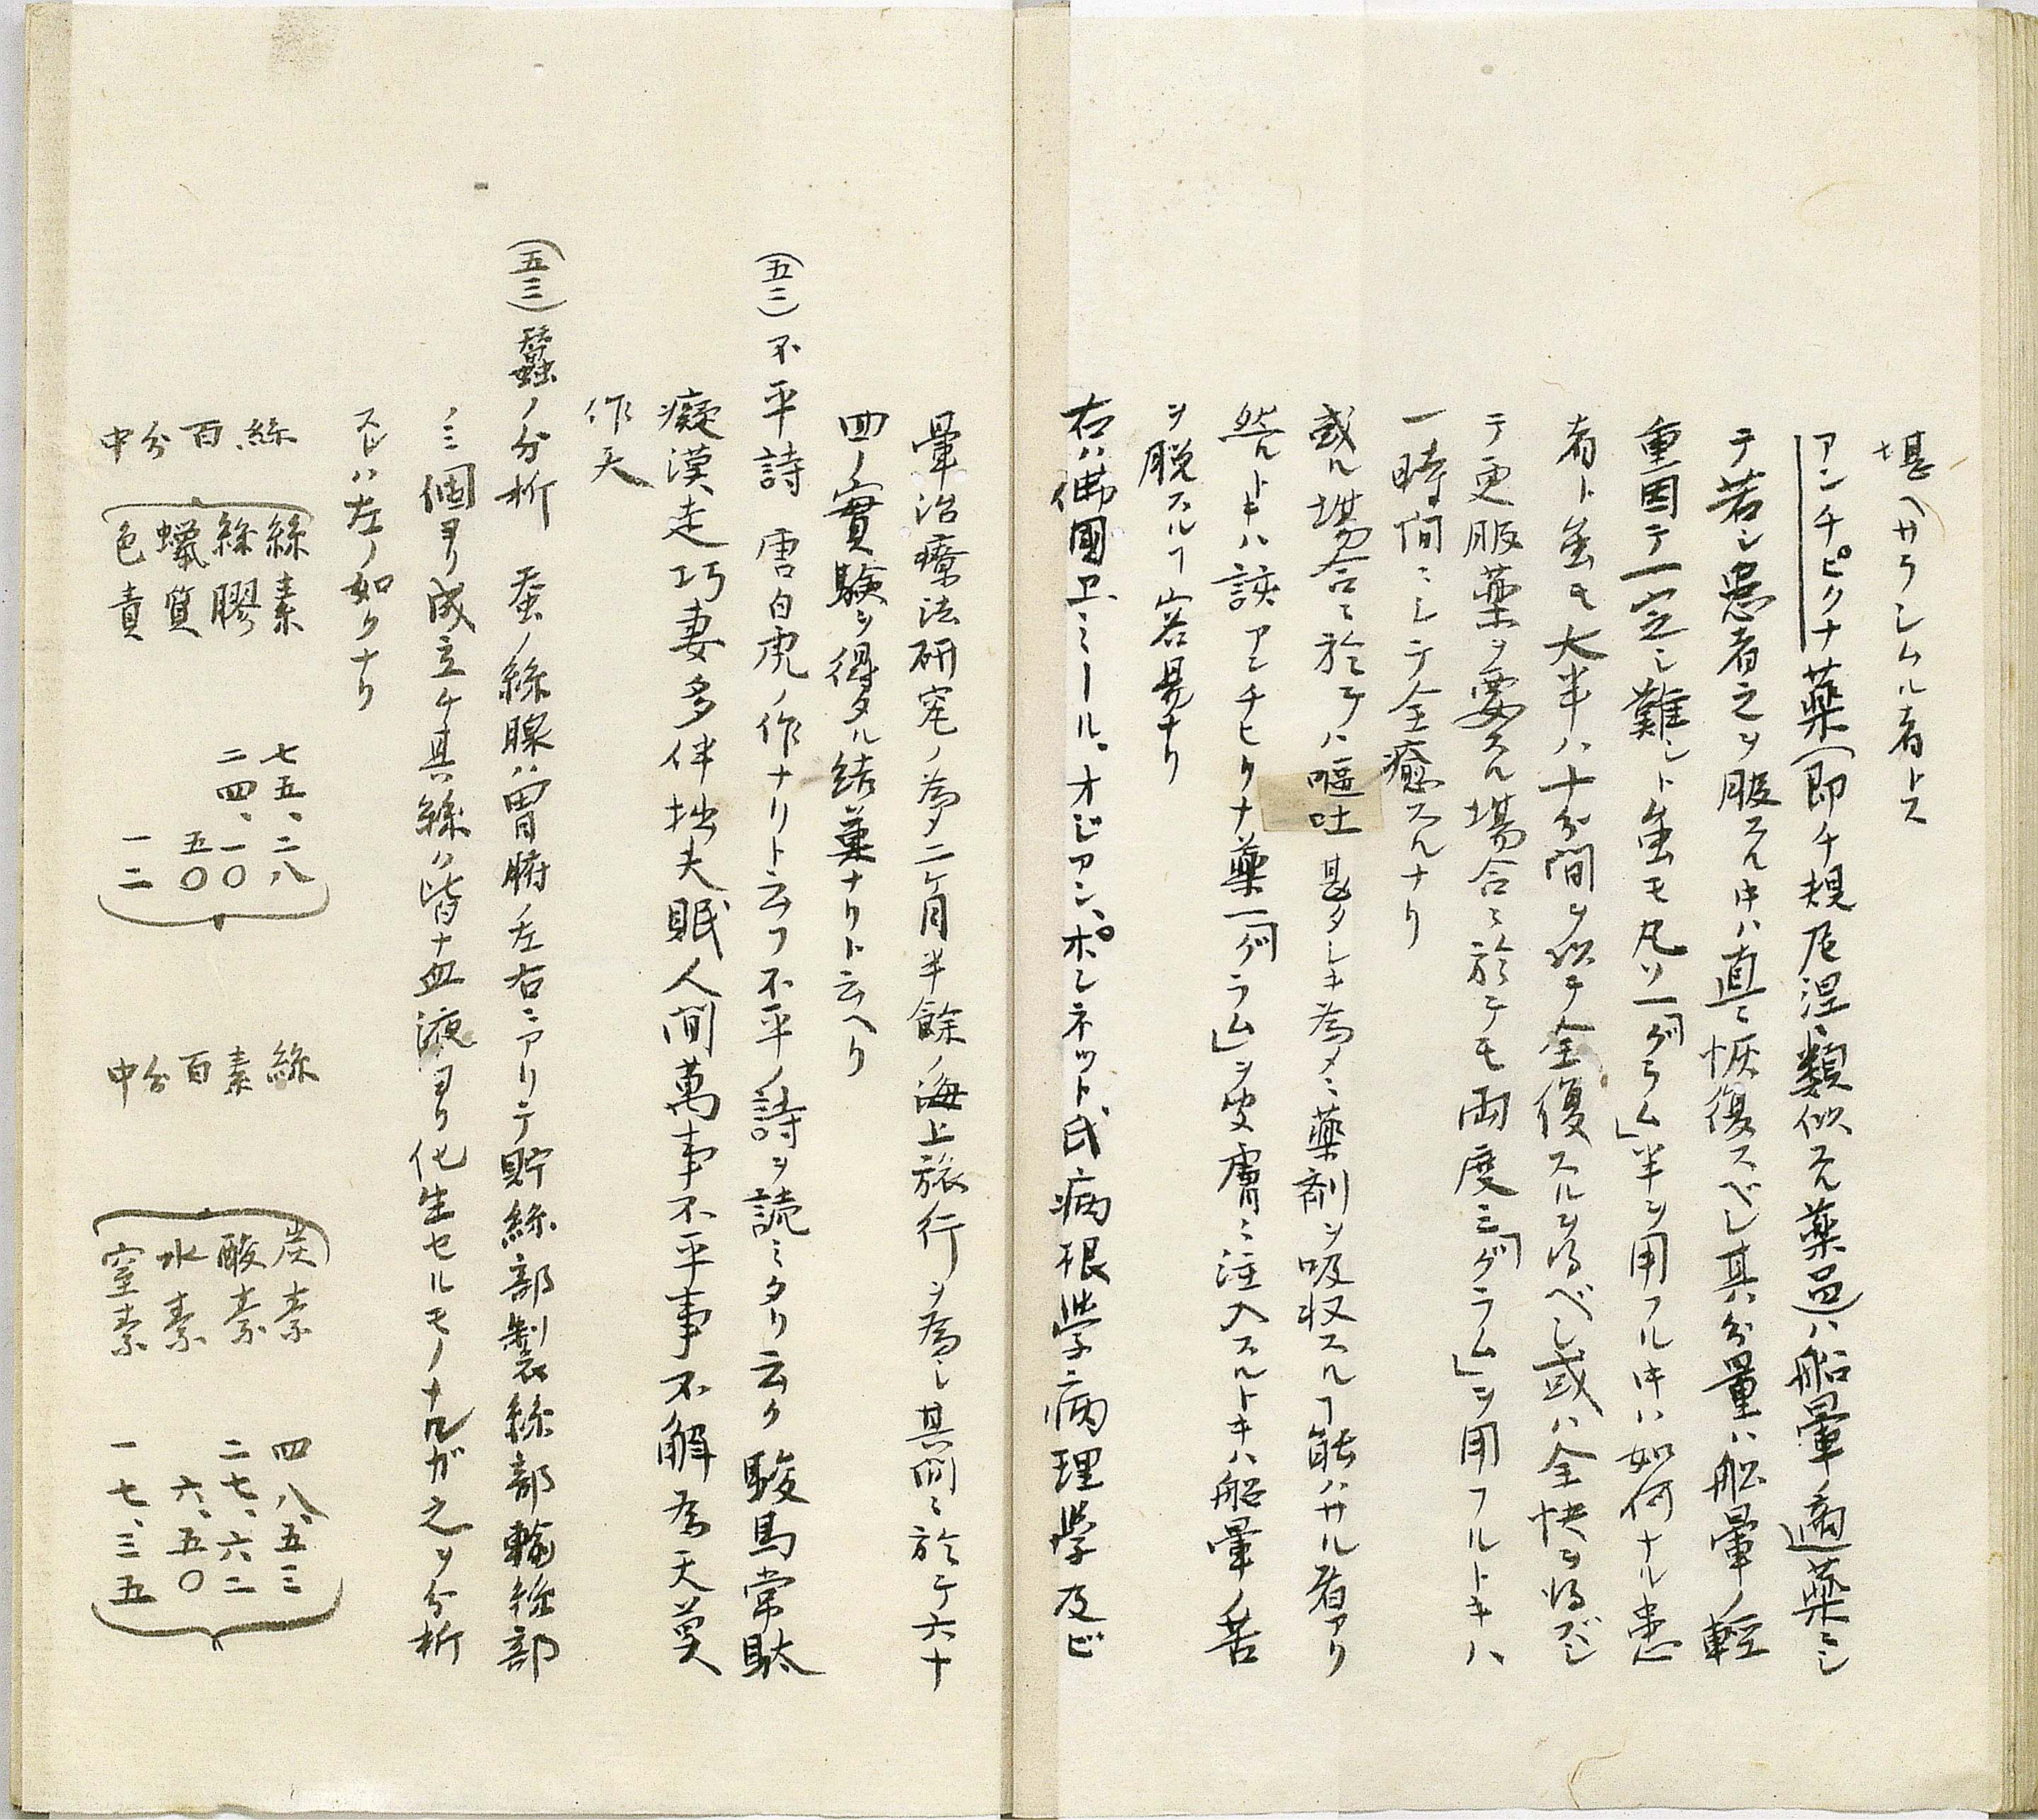 堪ヘサラシムル者トス
アンチピリナ薬(即チ規尼涅ニ類似スル薬品)ハ船暈ノ適薬ニシ
テ若シ患者之ヲ服スル时ハ直ニ恢復スベシ其分量ハ船暈ノ軽
重因テ一定シ難シト虽モ凡ソ一「グラム」半ヲ用フル时ハ如何ナル患
者ト虽モ大半ハ十分間ヲ以テ全復スルヲ得ベシ或ハ全快ヲ得ズシ
テ更服薬ヲ要スル場合ニ於テモ両度三「グラム」ヲ用フルトキハ
一時間ニシテ全癒スルナリ
或ル場合ニ於テハ嘔吐甚タシキ為メニ薬剤ヲ吸収スルヿ能ハサル者アリ
然ルトキハ該アンチヒリナ薬一「グラム」ヲ皮膚ニ注入スルトキハ船暈ノ苦
ヲ脱スルヿ容易ナリ
右ハ佛國エミール。オジアン、ポンネット氏病根学病理学及ビ
暈治療法研究ノ為メ二ヶ月半餘ノ海上旅行ヲ為シ其間ニ於テ六十
四ノ實験ヲ得タル結菓ナリト云ヘリ
(五二)不平詩 唐白虎ノ作ナリト云フ不平ノ詩ヲ読ミタリ云ク駿馬常駄
癡漢走巧妻多伴拙夫眠人間萬事不平事不解為天莫
作天
(五三)蠶ノ分析 蚕ノ絲腺ハ胃腑ノ左右ニアリテ貯絲部製絲部輸絲部
ノ三個ヨリ成立ケ其絲ハ皆ナ血液ヨリ化生セルモノナルガ之ヲ分析
スレハ左ノ如クナリ
絲百分中
絲素 七五、二八
絲膠 二四、一〇
蠟質 五〇
色責 一二
絲素百分中
炭素 四八、五三
酸素 二七、六二
水素 六、五〇
窒素 一七、三五